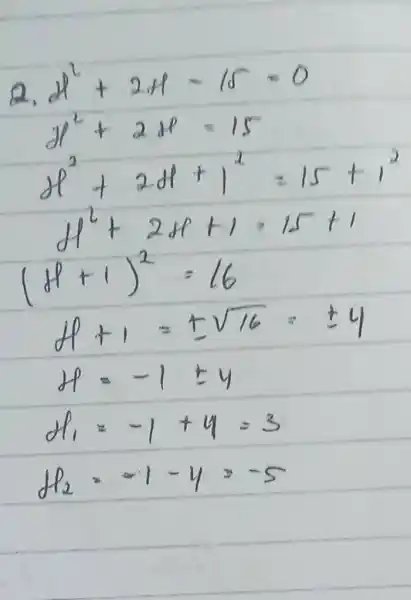 2. x² + 2x - 15 = 0
x² + 2x = 15
x² + 2x + 1² = 15 + 1²
x² + 2x + 1 = 15 + 1
(x + 1)² = 16
x + 1 = ±√16 = ±4
x = -1 ± 4
x₁ = -1 + 4 = 3
x₂ = -1 - 4 = -5